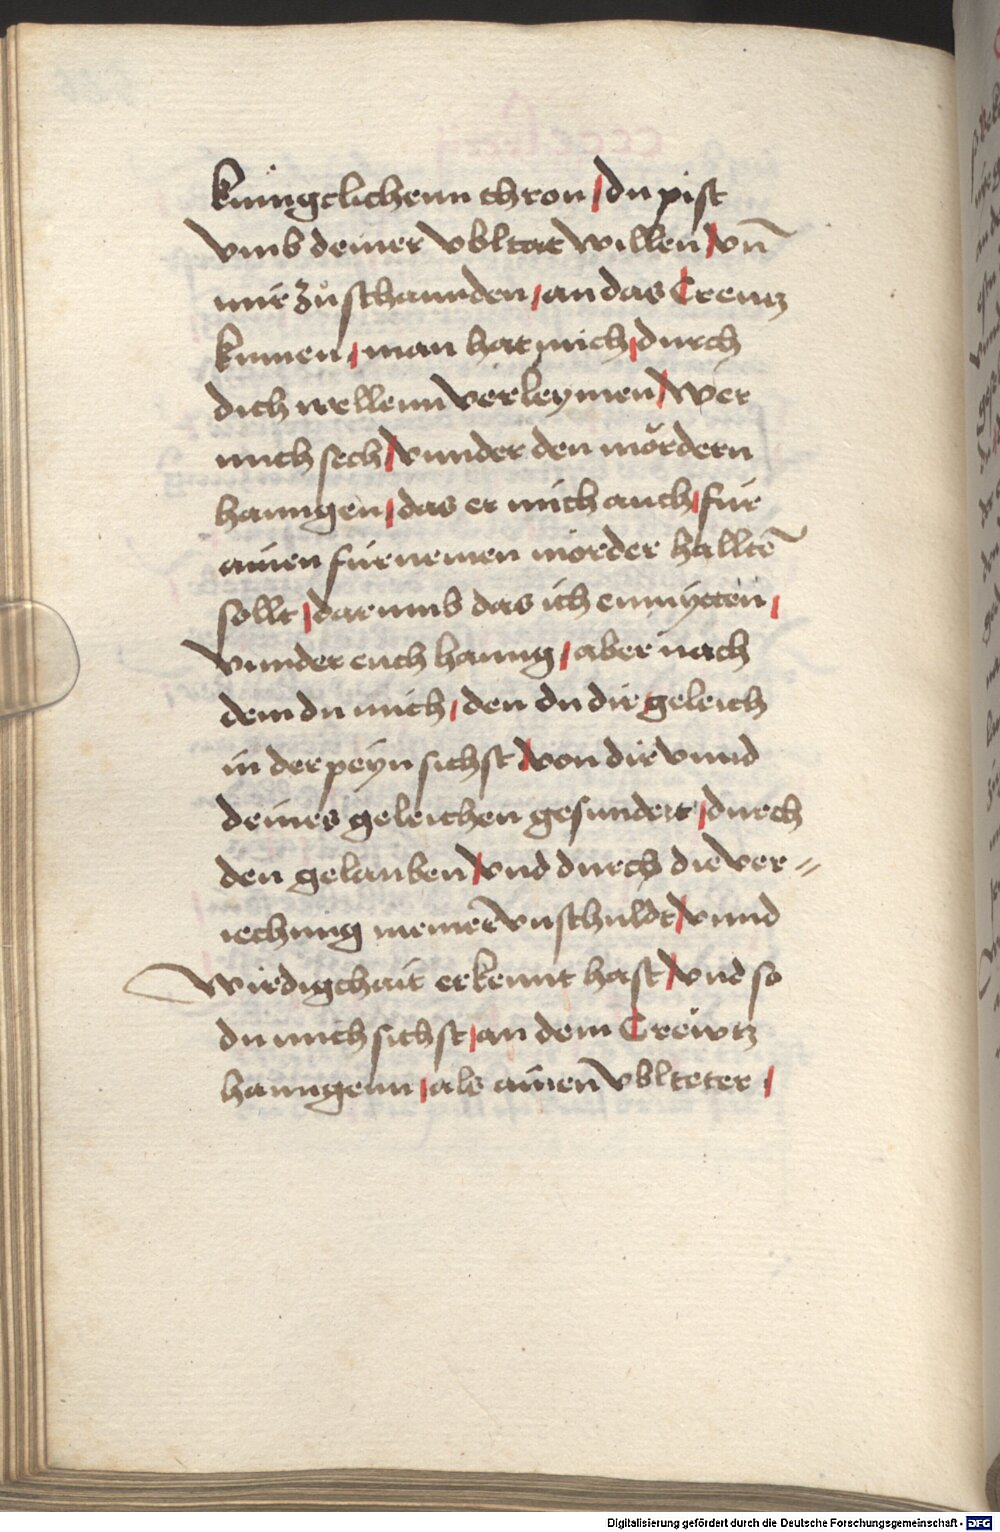 kuingclichenn thron / du pist
vmb deiner vbltat willen / vn̄
mir zů schannden / an das Creutz
kumen / man hat mich / durch
dich wellenn verleymen / wer
mich sech / vnnder den mördern
hanngen / das er mich auch / für
ainen fürnemen mörder halltē
sollt / darumb das ich enmytten /
vnnder euch hanng / aber nach
dem du mich / den du dir geleich
in der peyn sichst / von dir vnnd
deines geleichen gesundert / durch
den gelauben / vnd durch die ver⸗
iechung meiner vnschuldt / vnnd
wirdigchait erkennt hast / vnd so
du mich sichst / an dem Creẅtz
hanngenn / als ainen vblteter /
Digitalisierung gefördert durch die Deutsche Forschungsgemeinschaft - DFG